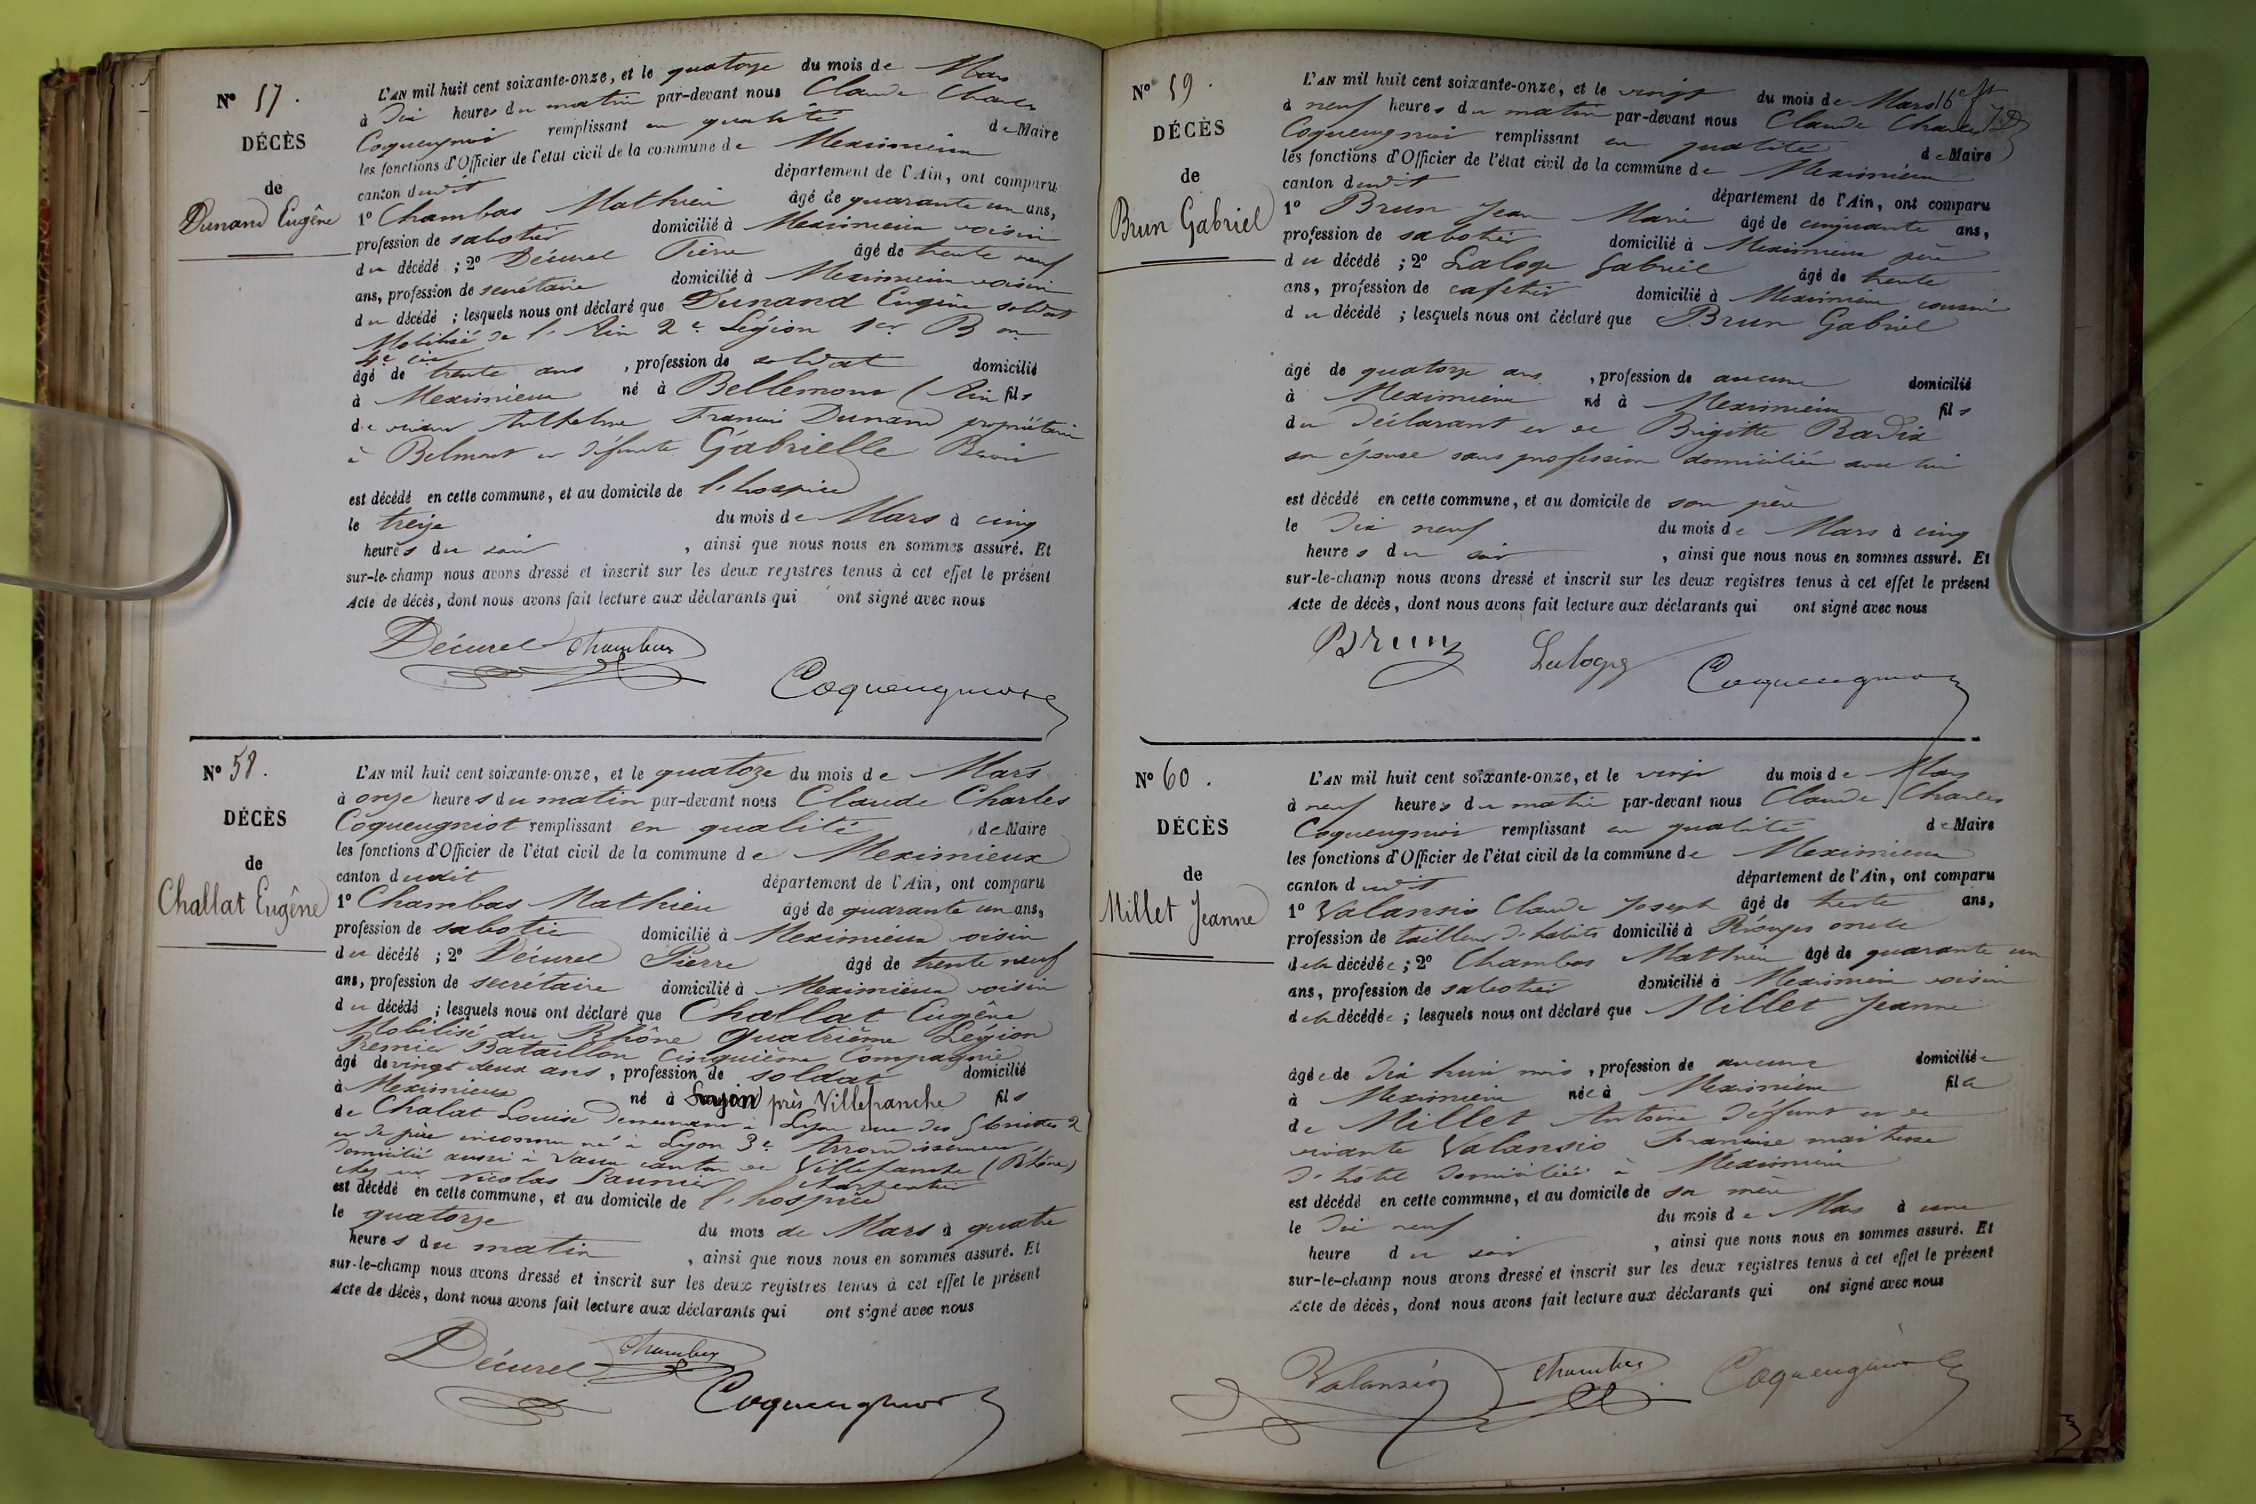 N° 57.
DÉCÈS
de
Dunand Eugène
L'AN mil huit cent soixante-onze, et le quatorze du mois de Mars
à Dix heures du matin par-devant nous Claude Charles
Coqueugniot remplissant en qualité de Maire
les fonctions d'Officier de l'état civil de la commune de Meximieux
canton dudit département de l'Ain, ont comparu
1° Chambas Mathieu âgé de quarante un ans,
profession de sabotier domicilié à Meximieux voisin
du décédé ; 2° Décurel Pierre âgé de trente neuf
ans, profession de secrétaire domicilié à Meximieux voisin
du décédé ; lesquels nous ont déclaré que Dunand Eugène soldat
Mobilisé de l'Ain 2e Légion 1er Bon
4e cie
âgé de trente ans, profession de soldat domicilié
à Meximieux né à Bellemont (Ain fils
de vivant Anthelme François Dunand propriétaire
à Belmont et défunte Gabrielle
est décédé en cette commune, et au domicile de l'hospice
le treize du mois de Mars à cinq
heures du soir, ainsi que nous nous en sommes assuré. Et
sur-le-champ nous avons dressé et inscrit sur les deux registres tenus à cet effet le présent
Acte de décès, dont nous avons fait lecture aux déclarants qui ont signé avec nous
Décurel Chambas
Coqueugniot
N° 58.
DÉCÈS
de
Challat Eugène
L'AN mil huit cent soixante-onze, et le quatorze du mois de Mars
à onze heures du matin par-devant nous Claude Charles
Coqueugniot remplissant en qualité de Maire
les fonctions d'Officier de l'état civil de la commune de Meximieux
canton dudit département de l'Ain, ont comparu
1° Chambas Mathieu âgé de quarante un ans,
profession de sabotier domicilié à Meximieux voisin
du décédé ; 2° Décurel Pierre âgé de trente neuf
ans, profession de secrétaire domicilié à Meximieux voisin
du décédé ; lesquels nous ont déclaré que Challat Eugène
Mobilisé du Rhône quatrième Légion
Premier Bataillon Cinquième Compagnie
âgé de vingt deux ans, profession de soldat domicilié
à Meximieux né à près Villefranche fils
de Chalat Louise Demeurant à Lyon rue des 2
et de père inconnu né à Lyon 3e Arrondissement
Domicilié aussi à Vaux canton de Villefranche (Rhône)
chez Nicolas Saunier charpentier
est décédé en cette commune, et au domicile de l'hospice
le quatorze du mois de Mars à quatre
heures du matin, ainsi que nous nous en sommes assuré. Et
sur-le-champ nous avons dressé et inscrit sur les deux registres tenus à cet effet le présent
Acte de décès, dont nous avons fait lecture aux déclarants qui ont signé avec nous
Décurel Chambas
Coqueugniot
N° 59.
DÉCÈS
de
Brun Gabriel
L'AN mil huit cent soixante-onze, et le vingt du mois de Mars
à neuf heures du matin par-devant nous Claude Charles
Coqueugniot remplissant en qualité de Maire
les fonctions d'Officier de l'état civil de la commune de Meximieux
canton dudit département de l'Ain, ont comparu
1° Brun Jean Marie âgé de cinquante ans,
profession de sabotier domicilié à Meximieux père
du décédé ; 2° Laloge Gabriel âgé de trente
ans, profession de cafetier domicilié à Meximieux cousin
du décédé ; lesquels nous ont déclaré que Brun Gabriel
âgé de quatorze ans, profession de aucune domicilié
à Meximieux né à Meximieux fils
du Déclarant et de Brigitte Radix
son épouse sans profession domiciliée avec lui
est décédé en cette commune, et au domicile de son père
le Dix neuf du mois de Mars à cinq
heures du soir, ainsi que nous nous en sommes assuré. Et
sur-le-champ nous avons dressé et inscrit sur les deux registres tenus à cet effet le présent
Acte de décès, dont nous avons fait lecture aux déclarants qui ont signé avec nous
Brun Laloge Coqueugniot
N° 60.
DÉCÈS
de
Millet Jeanne
L'AN mil huit cent soixante-onze, et le vingt du mois de Mars
à neuf heures du matin par-devant nous Claude Charles
Coqueugniot remplissant en qualité de Maire
les fonctions d'Officier de l'état civil de la commune de Meximieux
canton dudit département de l'Ain, ont comparu
1° Valansio Claude Joseph âgé de trente ans,
profession de tailleur d'habits domicilié à Pérouges oncle
de la décédée ; 2° Chambas Mathieu âgé de quarante un
ans, profession de sabotier domicilié à Meximieux voisin
de la décédée ; lesquels nous ont déclaré que Millet Jeanne
âgée de Dix huit mois, profession de aucune domiciliée
à Meximieux née à Meximieux fille
de Millet Antoine défunt et de
vivante Valansio Françoise maîtresse
d'hôtel domiciliée à Meximieux
est décédé en cette commune, et au domicile de sa mère
le Dix neuf du mois de Mars à une
heure du soir, ainsi que nous nous en sommes assuré. Et
sur-le-champ nous avons dressé et inscrit sur les deux registres tenus à cet effet le présent
Acte de décès, dont nous avons fait lecture aux déclarants qui ont signé avec nous
Valansio Chambas Coqueugniot